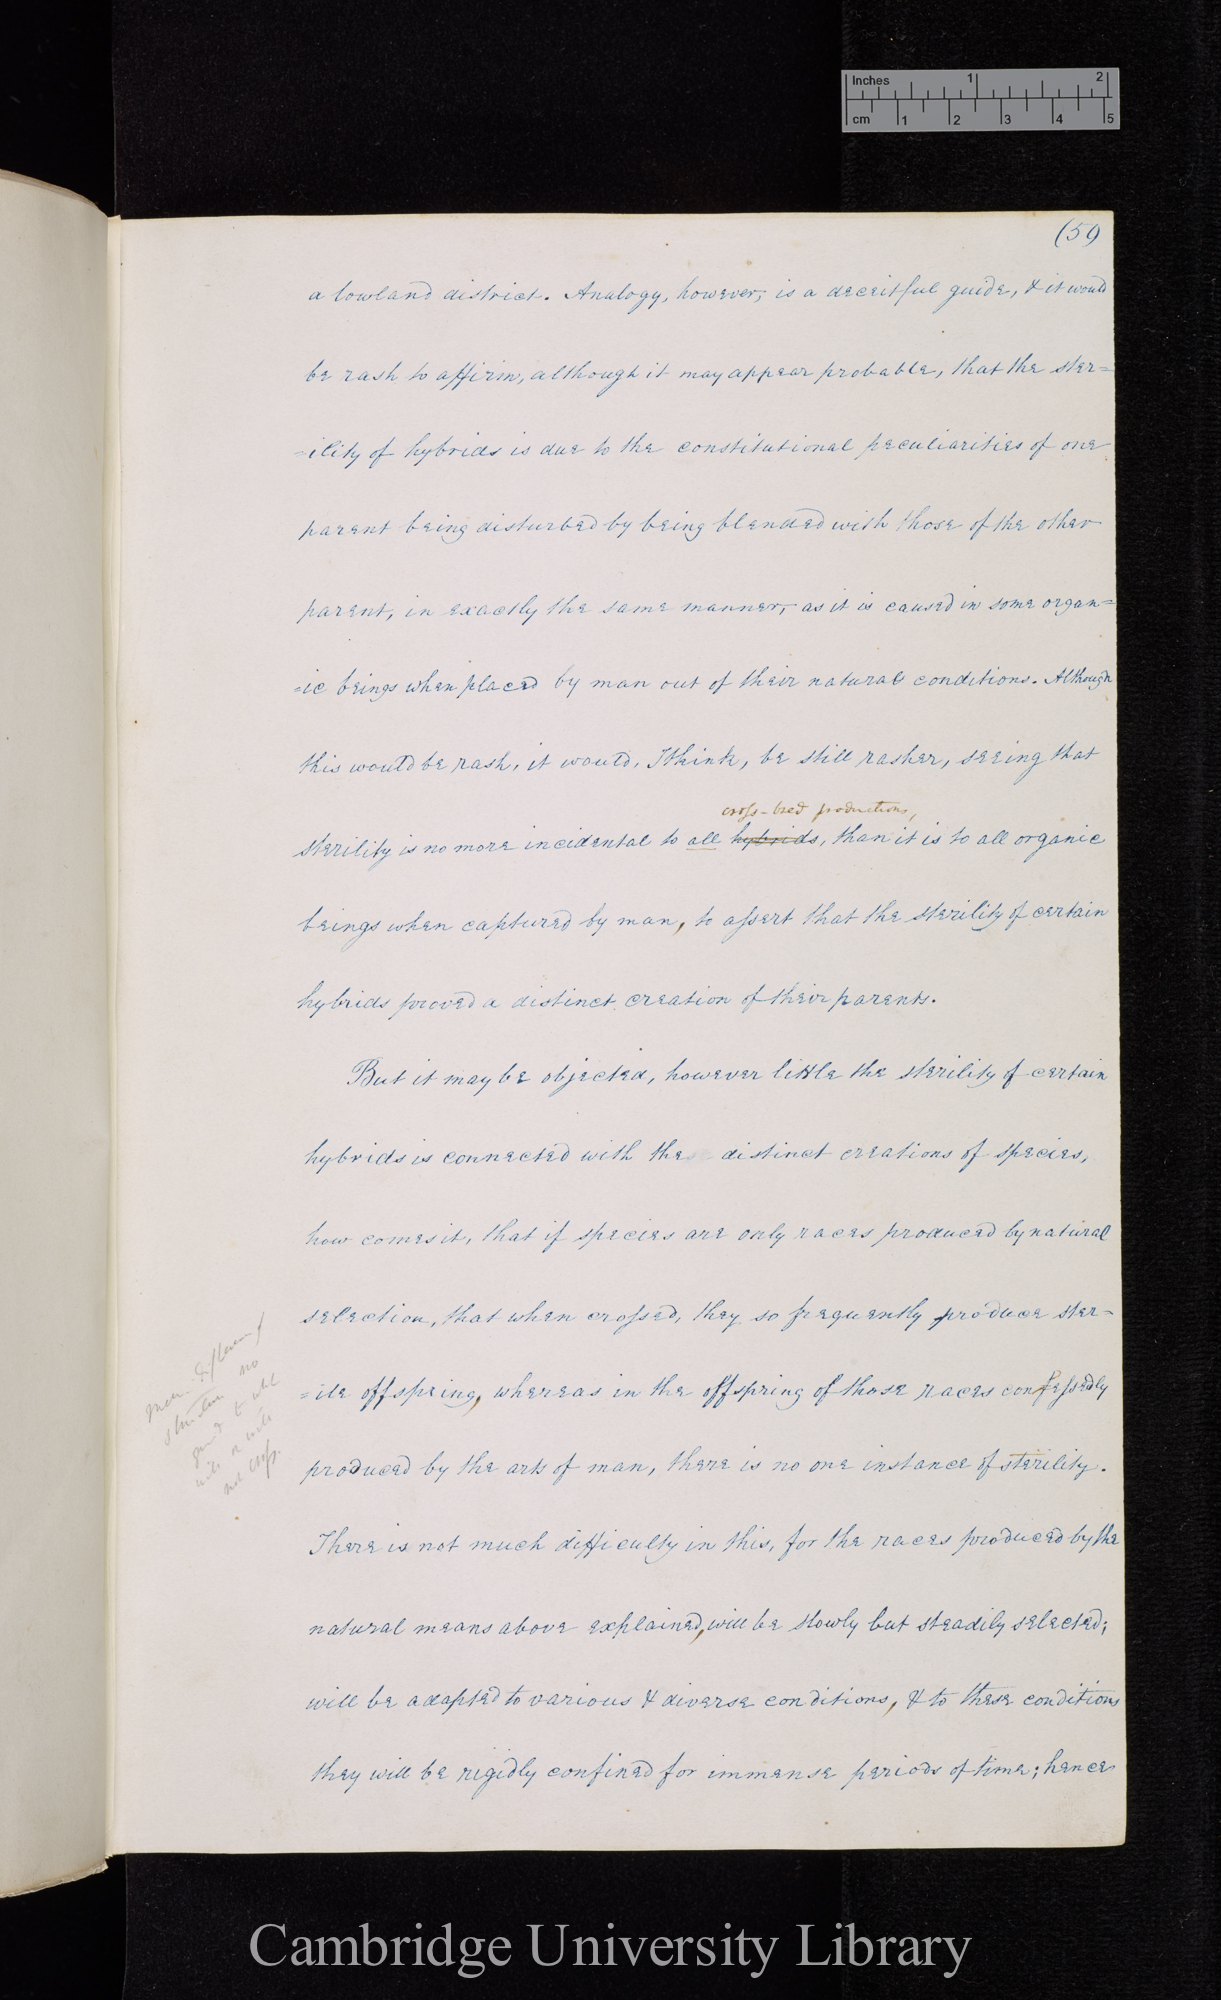 Inches 1 2
cm 1 2 3 4 5
(59
a lowland district. Analogy, however, is a deceitful guide, & it would
be rash to affirm, although it may appear probable, that the ster=
=ility of hybrids is due to the constitutional peculiarities of one
parent being disturbed by being blended with those of the other
parent, in exactly the same manner, as it is caused in some organ=
=ic beings when placed by man out of their natural conditions. Although
this would be rash, it would, I think, be still rasher, seeing that
cross-bred productions,
sterility is no more incidental to all hybrids, than it is to all organic
beings when captured by man, to assert that the sterility of certain
hybrids proved a distinct creation of their parents.
But it may be objected, however little the sterility of certain
hybrids is connected with the distinct creations of species,
how comes it, that if species are only races produced by natural
selection, that when crossed, they so frequently produce ster=
=ile offspring, whereas in the offspring of those races confessedly
produced by the arts of man, there is no one instance of sterility.
There is not much difficulty in this, for the races produced by the
natural means above explained, will be slowly but steadily selected;
will be adapted to various & diverse conditions, & to these conditions
they will be rigidly confined for immense periods of time; hence
mere difference of
structure no
guide to what
will or will
not cross.
Cambridge University Library